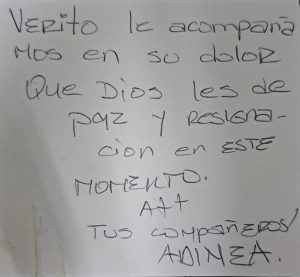 VERITO le acompaña
mos en su dolor
Que Dios les de
paz y resigna-
cion en ESTE
MOMENTO.
Att
TUS COMPAÑEROS/
ADINEA.